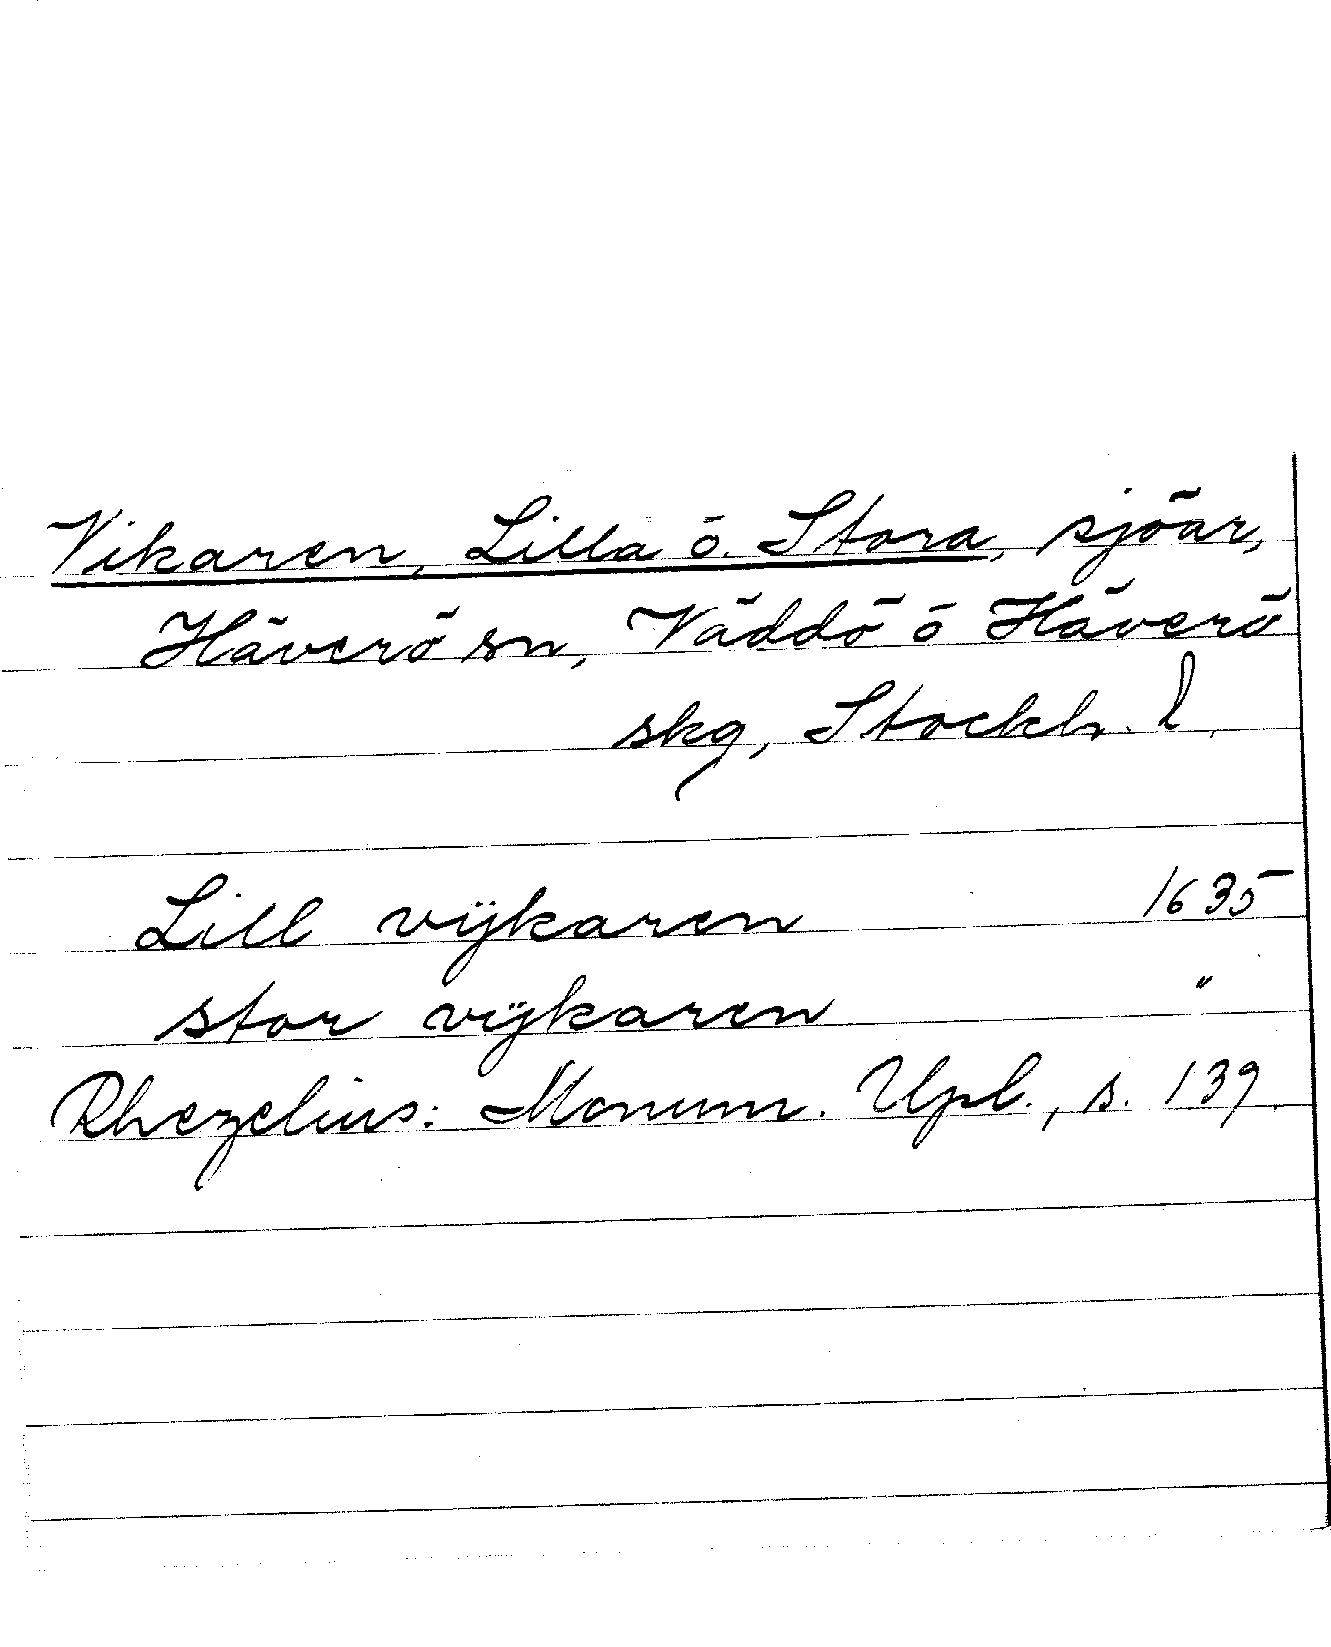 Vikaren, Lilla o. Stora, sjöar,
Häverö sn, Väddö o Häverö
skg, Stockh. l.
Lill vÿkaren 1635
stor vÿkaren "
Rhezelius: Monum. Upl., s. 139.